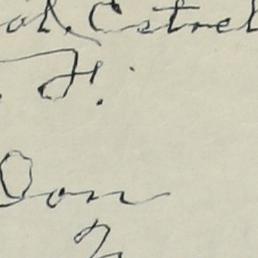 ol. Estrel
F.
Don